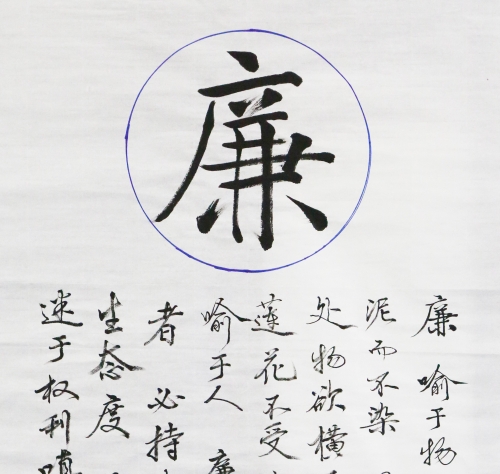 廉
廉 喻于物
泥而不染
处物欲横
莲花不受
喻于人 廉
者 必持
生态度
迷于权利